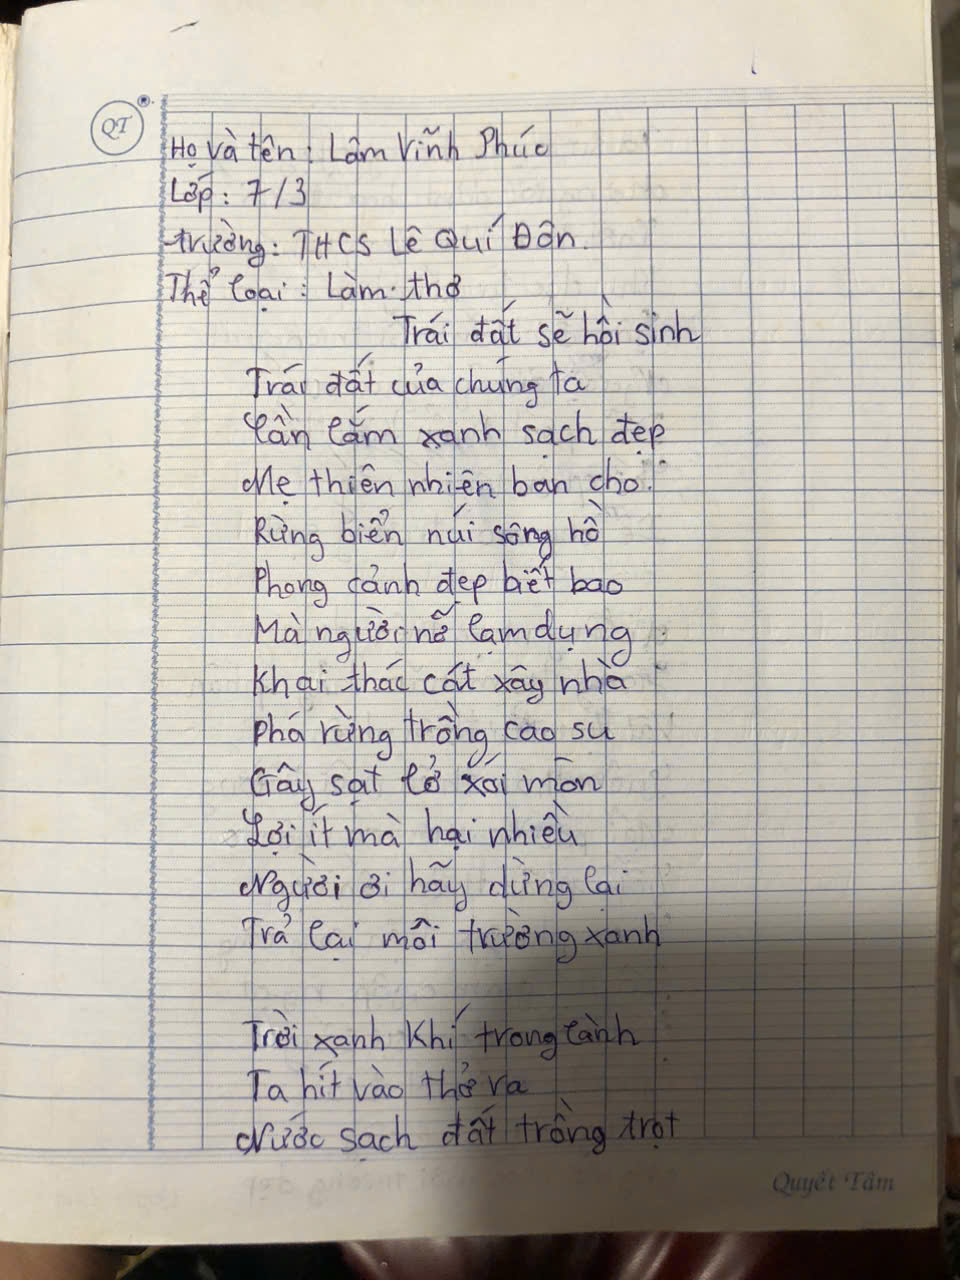 QT
Họ và tên: Lâm Vĩnh Phúc
Lớp: 7/3
Trường: THCS Lê Quí Đôn.
Thể loại: Làm thơ
Trái đất sẽ hồi sinh
Trái đất của chúng ta
Cần lắm xanh sạch đẹp
Mẹ thiên nhiên ban cho.
Rừng biển núi sông hồ
Phong cảnh đẹp biết bao
Mà người nỡ lạm dụng
Khai thác cát xây nhà
Phá rừng trồng cao su
Gây sạt lở xói mòn
Lợi ít mà hại nhiều
Người ơi hãy dừng lại
Trả lại môi trường xanh
Trời xanh khí trong lành
Ta hít vào thở ra
Nước sạch đất trồng trọt
Quyết Tâm